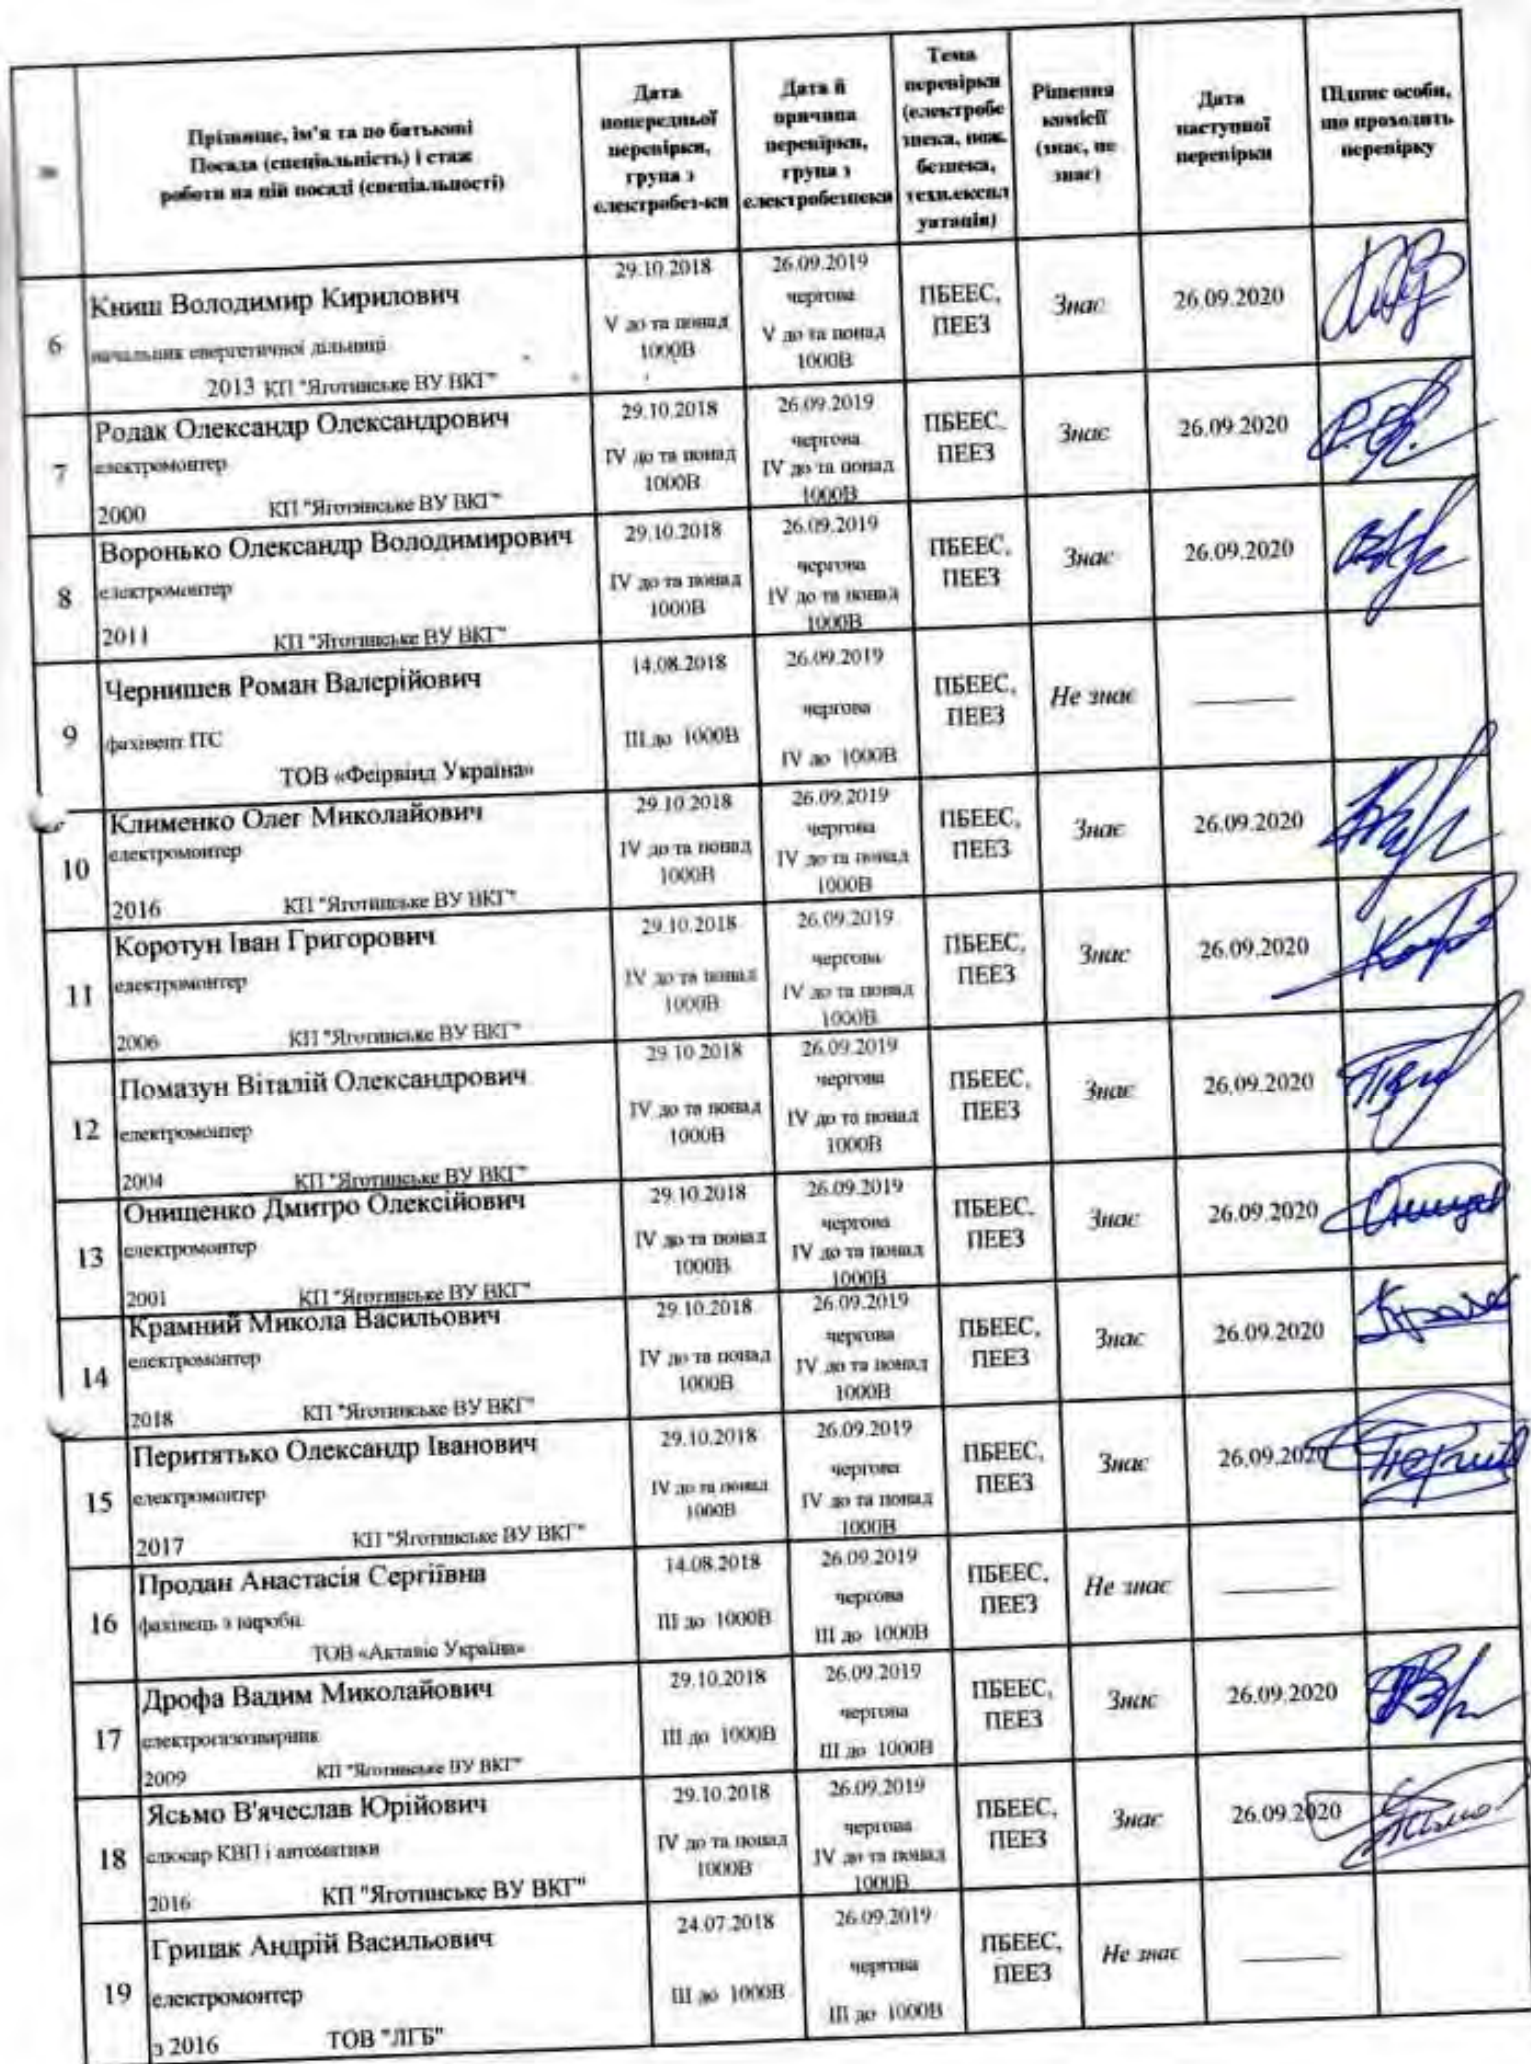 №
Прізвище, ім'я та по батькові
Посада (спеціальність) і стаж
роботи на цій посаді (спеціальності)
Дата
попередньої
перевірки,
група з
електробез-ки
Дата й
причина
перевірки,
група з
електробезпеки
Тема
перевірки
(електробе
зпека, пож.
безпека,
техн.експл
уатація)
Рішення
комісії
(знає, не
знає)
Дата
наступної
перевірки
Підпис особи,
що проходить
перевірку
6
Книш Володимир Кирилович
начальник енергетичної дільниці
2013 КП "Яготинське ВУ ВКГ"
29.10.2018
V до та понад
1000В
26.09.2019
чергова
V до та понад
1000В
ПБЕЕС,
ПЕЕЗ
Знає
26.09.2020
7
Родак Олександр Олександрович
електромонтер
2000 КП "Яготинське ВУ ВКГ"
29.10.2018
IV до та понад
1000В
26.09.2019
чергова
IV до та понад
1000В
ПБЕЕС,
ПЕЕЗ
Знає
26.09.2020
8
Воронько Олександр Володимирович
електромонтер
2011 КП "Яготинське ВУ ВКГ"
29.10.2018
IV до та понад
1000В
26.09.2019
чергова
IV до та понад
1000В
ПБЕЕС,
ПЕЕЗ
Знає
26.09.2020
9
Чернишев Роман Валерійович
фахівець ІТС
ТОВ «Феірвінд Україна»
14.08.2018
III до 1000В
26.09.2019
чергова
IV до 1000В
ПБЕЕС,
ПЕЕЗ
Не знає
10
Клименко Олег Миколайович
електромонтер
2016 КП "Яготинське ВУ ВКГ"
29.10.2018
IV до та понад
1000В
26.09.2019
чергова
IV до та понад
1000В
ПБЕЕС,
ПЕЕЗ
Знає
26.09.2020
11
Коротун Іван Григорович
електромонтер
2006 КП "Яготинське ВУ ВКГ"
29.10.2018
IV до та понад
1000В
26.09.2019
чергова
IV до та понад
1000В
ПБЕЕС,
ПЕЕЗ
Знає
26.09.2020
12
Помазун Віталій Олександрович
електромонтер
2004 КП "Яготинське ВУ ВКГ"
29.10.2018
IV до та понад
1000В
26.09.2019
чергова
IV до та понад
1000В
ПБЕЕС,
ПЕЕЗ
Знає
26.09.2020
13
Онищенко Дмитро Олексійович
електромонтер
2001 КП "Яготинське ВУ ВКГ"
29.10.2018
IV до та понад
1000В
26.09.2019
чергова
IV до та понад
1000В
ПБЕЕС,
ПЕЕЗ
Знає
26.09.2020
14
Крамний Микола Васильович
електромонтер
2018 КП "Яготинське ВУ ВКГ"
29.10.2018
IV до та понад
1000В
26.09.2019
чергова
IV до та понад
1000В
ПБЕЕС,
ПЕЕЗ
Знає
26.09.2020
15
Перитятько Олександр Іванович
електромонтер
2017 КП "Яготинське ВУ ВКГ"
29.10.2018
IV до та понад
1000В
26.09.2019
чергова
IV до та понад
1000В
ПБЕЕС,
ПЕЕЗ
Знає
26.09.2020
16
Продан Анастасія Сергіївна
фахівець з виробн.
ТОВ «Актавіс Україна»
14.08.2018
III до 1000В
26.09.2019
чергова
III до 1000В
ПБЕЕС,
ПЕЕЗ
Не знає
17
Дрофа Вадим Миколайович
електрогазозварник
2009 КП "Яготинське ВУ ВКГ"
29.10.2018
III до 1000В
26.09.2019
чергова
III до 1000В
ПБЕЕС,
ПЕЕЗ
Знає
26.09.2020
18
Ясьмо В'ячеслав Юрійович
слюсар КВП і автоматики
2016 КП "Яготинське ВУ ВКГ"
29.10.2018
IV до та понад
1000В
26.09.2019
чергова
IV до та понад
1000В
ПБЕЕС,
ПЕЕЗ
Знає
26.09.2020
19
Грицак Андрій Васильович
електромонтер
з 2016 ТОВ "ЛГБ"
24.07.2018
III до 1000В
26.09.2019
чергова
III до 1000В
ПБЕЕС,
ПЕЕЗ
Не знає